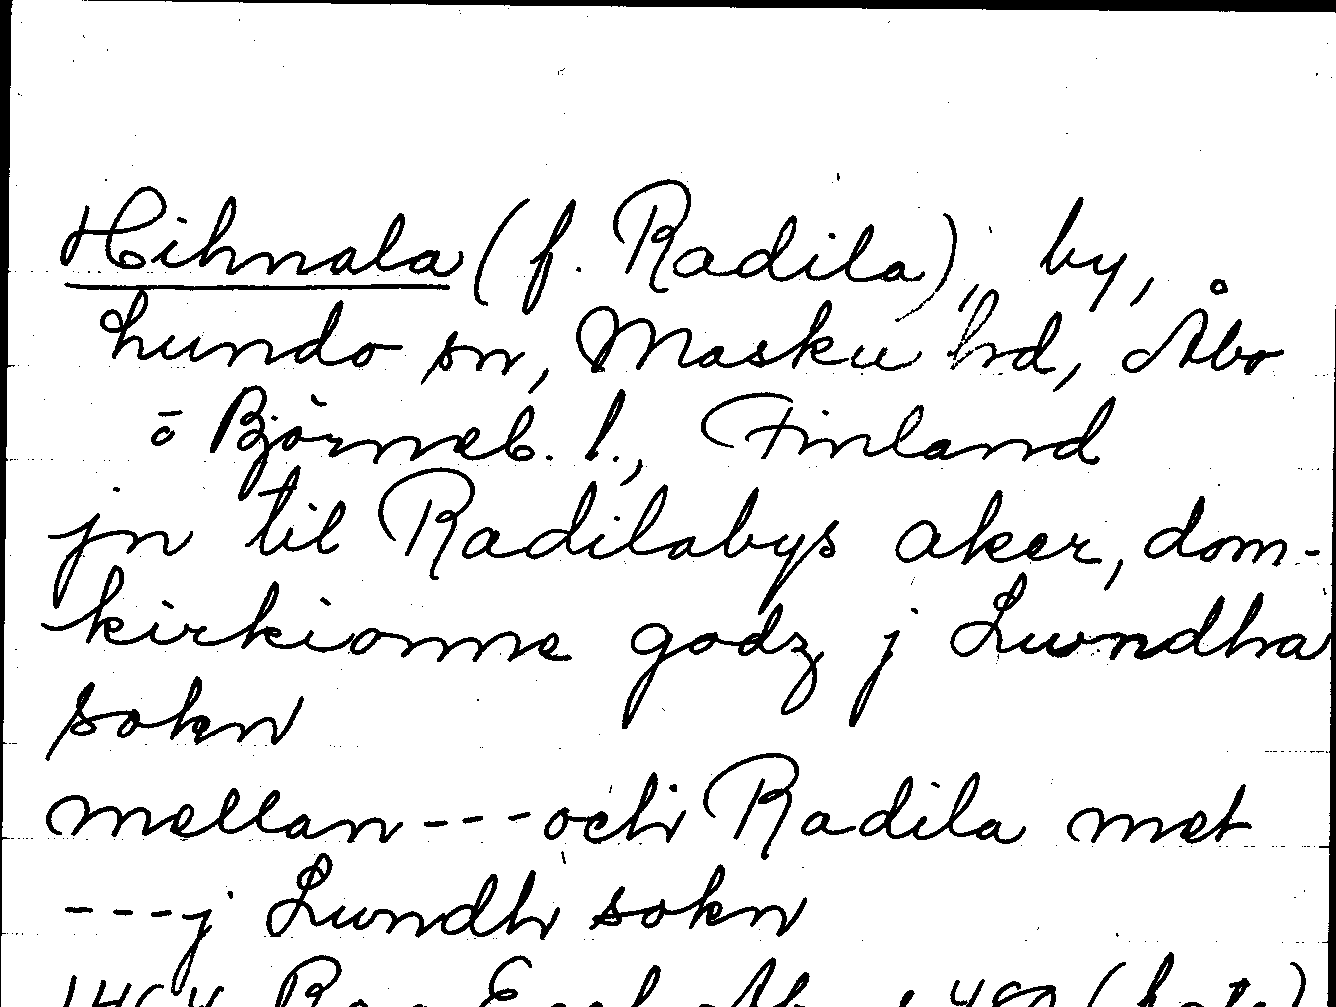 Hihnala (f. Radila), by,
Lundo sn, Masku hd, Åbo
o Björneb. l., Finland
jn til Radilabys aker, dom-
kirkionne godz j Lwndha
sokn
mellan --- och Radila met
--- j Lwndh sokn